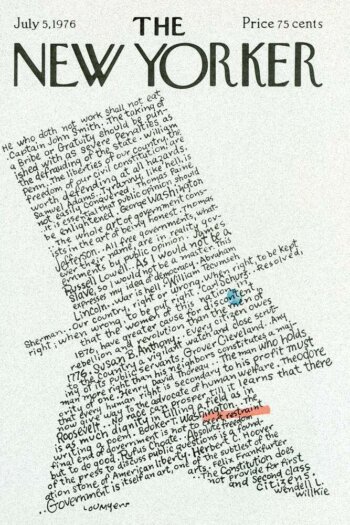 July 5, 1976
THE
Price 75 cents
NEW YORKER
He who doth not work shall not eat
. Captain John Smith. The taking of
a Bribe or Gratuity should be pun-
ished with as severe penalties as
the defrauding of the state. William
Penn. The liberties of our country, the
freedom of our civil constitution, are
worth defending at all hazards.
Samuel Adams. Tyranny, like hell, is
not easily conquered. Thomas Paine.
It is essential that public opinion should
be enlightened. George Washington
. The whole art of government cons-
ists in the art of being honest. Thomas
Jefferson. All free governments, what-
ever their name, are in reality gov-
ernments by public opinion. James
Russell Lowell. As I would not be a
slave, so I would not be a master. This
expresses my idea of democracy. Abraham
Lincoln. War is hell. William Tecumseh
Sherman. Our country, right or wrong. When right to be kept
right; when wrong to be put right. Carl Schurz. Resolved,
that the women of this nation in
1876, have greater cause for
rebellion and revolution than the men of
1776. Susan B. Anthony. Every citizen owes
to the country a vigilant watch and close scrut-
iny of its public servants. Grover Cleveland. Any
man more right than his neighbors constitutes a maj-
ority of one. Henry David Thoreau. The man who holds
that every human right is secondary to his profit must
now give way to the advocate of human welfare. Theodore
Roosevelt. No race can prosper till it learns that there
is as much dignity in tilling a field as in
writing a poem. Booker T. Washington. The
final end of government is not to exert restraint
but to do good. Rufus Choate. Absolute freedom
of the press to discuss public questions is a found-
ation stone of American liberty. Herbert C. Hoover.
..Government is itself an art, one of the subtlest of the
arts. Felix Frankfurter
. The Constitution does
not provide for first
and second class
citizens.
Wendell L.
Willkie
Lou Myers